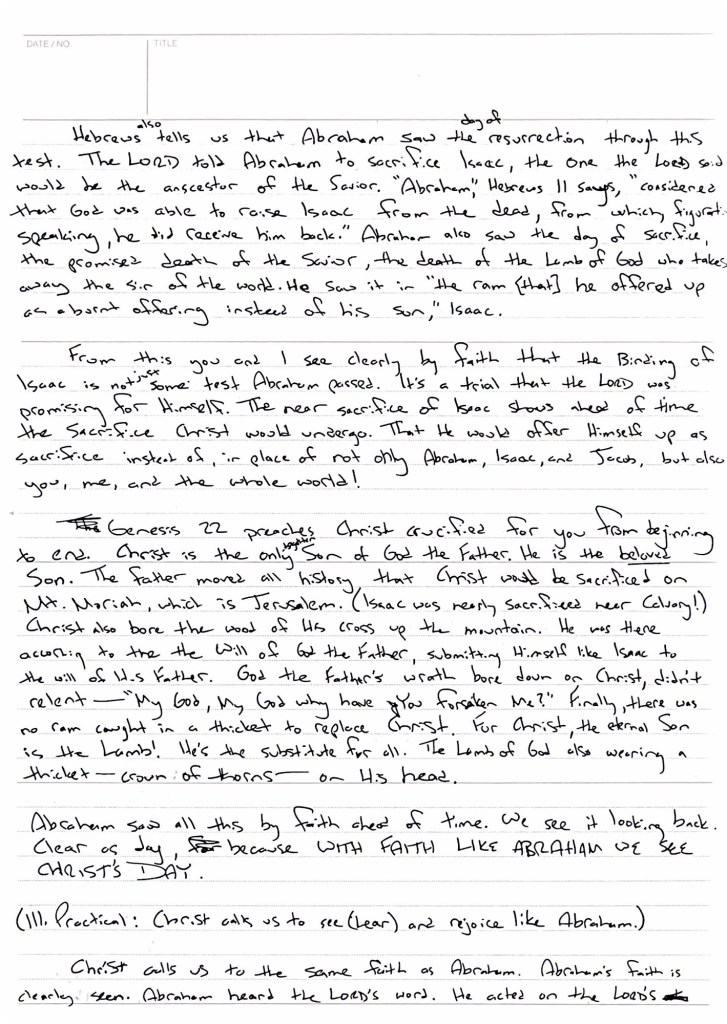 DATE / NO.
TITLE
Hebrews also tells us that Abraham saw the day of resurrection through this
test. The LORD told Abraham to sacrifice Isaac, the one the Lord said
would be the anscestor of the Savior. "Abraham," Hebrews 11 says, "considered
that God was able to raise Isaac from the dead, from which, figurati-
speaking, he did receive him back." Abraham also saw the day of sacrifice,
the promised death of the Savior, the death of the Lamb of God who takes
away the sin of the world. He saw it in "the ram [that] he offered up
as a burnt offering instead of his son," Isaac.
From this you and I see clearly by faith that the Binding of
Isaac is not just some test Abraham passed. It's a trial that the LORD was
promising for Himself. The near sacrifice of Isaac shows ahead of time
the Sacrifice Christ would undergo. That He would offer Himself up as
sacrifice instead of, in place of not only Abraham, Isaac, and Jacob, but also
you, me, and the whole world!
Genesis 22 preaches Christ crucified for you from beginning
to end. Christ is the only begotten Son of God the Father. He is the beloved
Son. The father moved all history that Christ would be sacrificed on
Mt. Moriah, which is Jerusalem. (Isaac was nearly sacrificed near Calvary!)
Christ also bore the wood of His cross up the mountain. He was there
according to the the will of God the Father, submitting Himself like Isaac to
the will of His Father. God the Father's wrath bore down on Christ, didn't
relent — "My God, My God why have You forsaken Me?" Finally, there was
no ram caught in a thicket to replace Christ. For Christ, the eternal Son
is the Lamb! He's the substitute for all. The Lamb of God also wearing a
thicket — crown of thorns — on His head.
Abraham saw all this by faith ahead of time. We see it looking back.
Clear as day, because WITH FAITH LIKE ABRAHAM WE SEE
CHRIST'S DAY.
(III. Practical: Christ calls us to see (hear) and rejoice like Abraham.)
Christ calls us to the same faith as Abraham. Abraham's faith is
clearly seen. Abraham heard the LORD's word. He acted on the LORD's